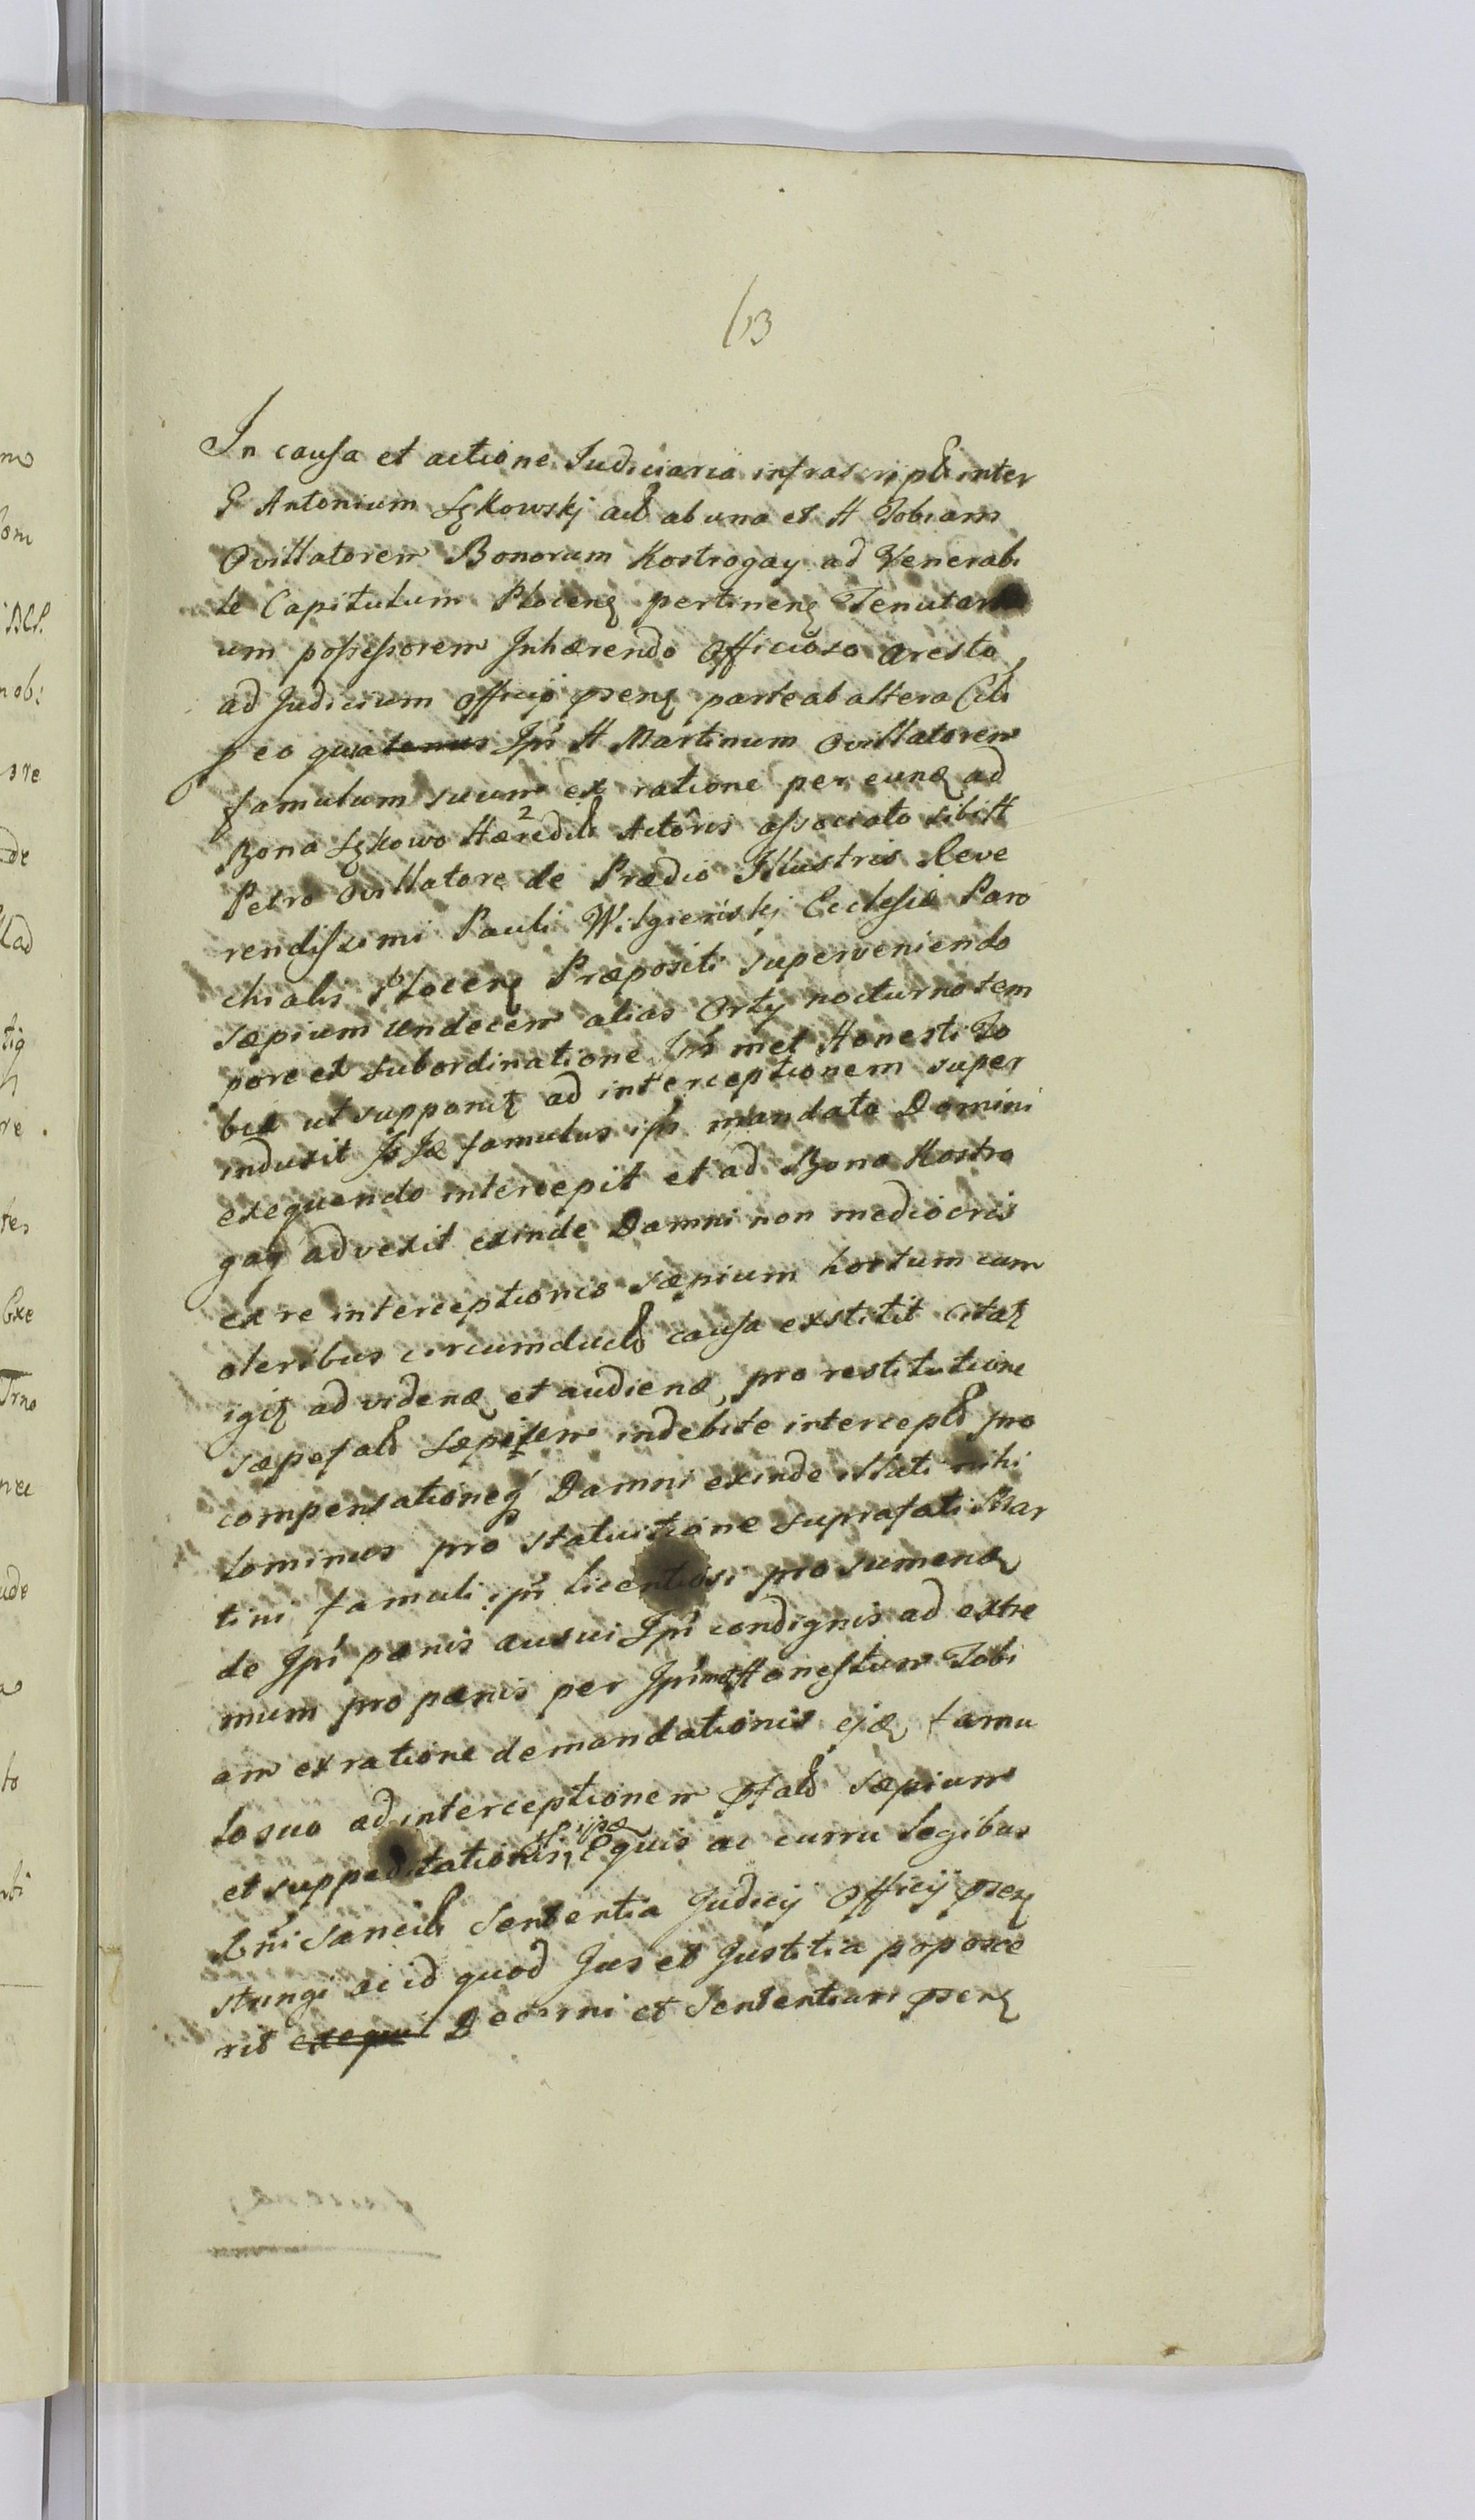 13
In causa et actione Judiciaria infrascript inter
G Antonium Łzkowskj act ab una et H Tobiam
Ovillatorem Bonorum Kostrogay ad Venerabi
le Capitulum Plocenz pertinenz Tenutari
um possessorem Inhærendo Officioso Aresto
ad Judicium Officij psenz parte ab altera Citt
p eo qua Ipi H Martinum Ovillatorem
famulum suum ex ratione per eund ad
Bona Łzkowo Hæredit Actoris associato sibi H
Petro Ovillatore de Prædio Illustris Reve
rendissimi Pauli Wilgienskj Ecclesiæ Paro
chialis Plocenz Præpositi superveniendo
sæpium undecem alias Orty nocturno tem
pore et subordinatione Ipi met Honesti To
biæ ut supponitz ad interceptionem super
induxit famulus ipi mandata Domini
exequendo intercepit et ad Bona Kostro
gay advexit exinde Damni non mediocris
ex re interceptionis sæpium hortum cum
oleribus circumduct causa exstitit citatz
igitz ad vidend et audiend, pro restitutione
sæpefat sæpium indebite intercept pro
compensationeq Damni exinde illati nihi
lominus pro statuitione suprafati Mar
tini famuli ipi licentiosi pro sumend
de Ipi pænis ausui Ipi condignis ad extre
mum pro pænis per Ipimet Honestum Tobi
am ex ratione demandationis ejd famu
lo suo ad interceptionem pfat sæpium
et suppeditationis, Equis ac curru legibus
Rni sancit Sententia Judicij Officij psenz
stringi ac id quod Jus et Justitia poposce
rit exequi Decerni et Sententiari psenz